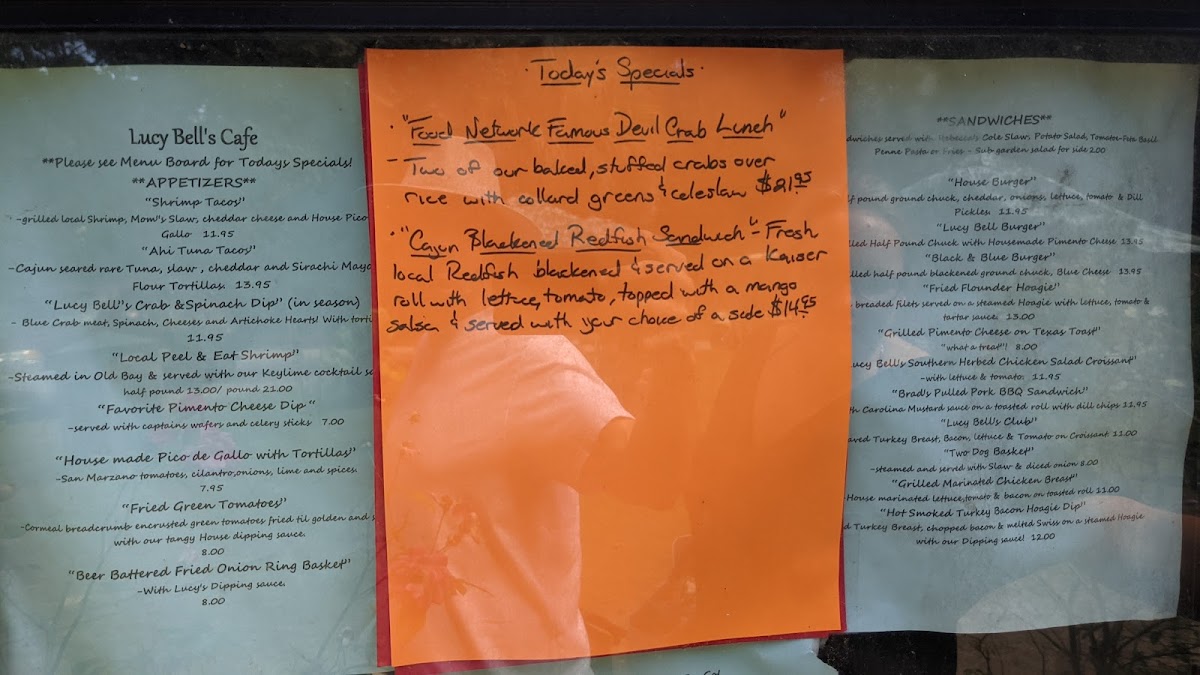 Lucy Bell's Cafe
**Please see Menu Board for Todays Specials!
**APPETIZERS**
"Shrimp Tacos"
-grilled local Shrimp, Mom's Slaw, cheddar cheese and House Pico
Gallo 11.95
"Ahi Tuna Tacos"
-Cajun seared rare Tuna, slaw , cheddar and Sirachi Mayo
Flour Tortillas. 13.95
"Lucy Bell"s Crab &Spinach Dip" (in season)
- Blue Crab meat, Spinach, Cheeses and Artichoke Hearts! With
11.95
"Local Peel & Eat Shrimp"
-Steamed in Old Bay & served with our Keylime cocktail
half pound 13.00/ pound 21.00
"Favorite Pimento Cheese Dip "
-served with captains wafers and celery sticks 7.00
"House made Pico de Gallo with Tortillas"
-San Marzano tomatoes, cilantro,onions, lime and spices.
7.95
"Fried Green Tomatoes"
-Cormeal breadcrumb encrusted green tomatoes fried til golden and
with our tangy House dipping sauce.
8.00
"Beer Battered Fried Onion Ring Basket"
-With Lucy's Dipping sauce.
8.00
·Today's Specials·
· "Food Network Famous Devil Crab Lunch"
- Two of our baked, stuffed crabs over
rice with collard greens & coleslaw $21.95
· "Cajun Blackened Redfish Sandwich" - Fresh
local Redfish blackened & served on a Kaiser
roll with lettuce, tomato, topped with a mango
salsa & served with your choice of a side $14.95
**SANDWICHES**
served with Cole Slaw, Potato Salad, Tomatoe-Feta Basil
Penne Pasta or Fries - Sub garden salad for side 2.00
"House Burger"
pound ground chuck, cheddar, onions, lettuce, tomato & Dill
Pickles. 11.95
"Lucy Bell Burger"
Half Pound Chuck with Housemade Pimento Cheese 13.95
"Black & Blue Burger"
half pound blackened ground chuck, Blue Cheese 13.95
"Fried Flounder Hoagie"
breaded filets served on a steamed Hoagie with lettuce, tomato &
tartar sauce. 13.00
"Grilled Pimento Cheese on Texas Toast"
"what a treat"! 8.00
Bell's Southern Herbed Chicken Salad Croissant"
-with lettuce & tomato. 11.95
"Brad's Pulled Pork BBQ Sandwich"
Carolina Mustard sauce on a toasted roll with dill chips 11.95
"Lucy Bell's Club"
Turkey Breast, Bacon, lettuce & Tomato on Croissant 11.00
"Two Dog Basket"
-steamed and served with Slaw & diced onion 8.00
"Grilled Marinated Chicken Breast"
House marinated lettuce,tomato & bacon on toasted roll 11.00
"Hot Smoked Turkey Bacon Hoagie Dip"
Turkey Breast, chopped bacon & melted Swiss on a steamed Hoagie
with our Dipping sauce! 12.00